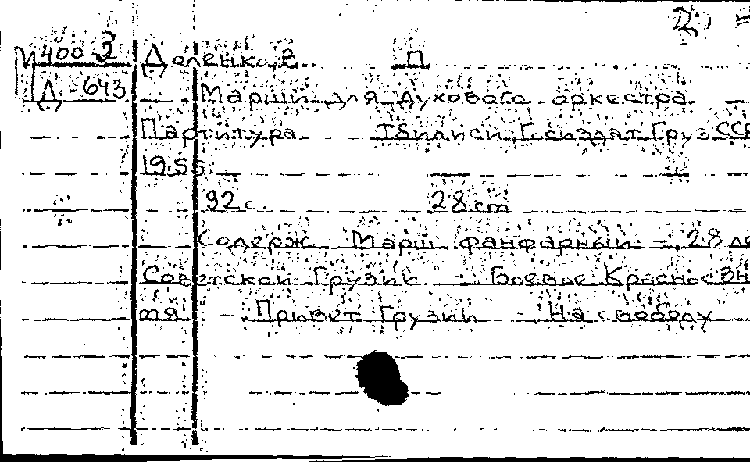 М400 2 Доленко, В. П.
Д-643
Марши для духового оркестра
Партитура Тбилиси, Госиздат Груз ССР
1955
92 с. 28 cm
Содерж Марш фанфарный - 28 ле
Советской Грузии Боевое Красное Зна
мя Привет Грузии На свободу